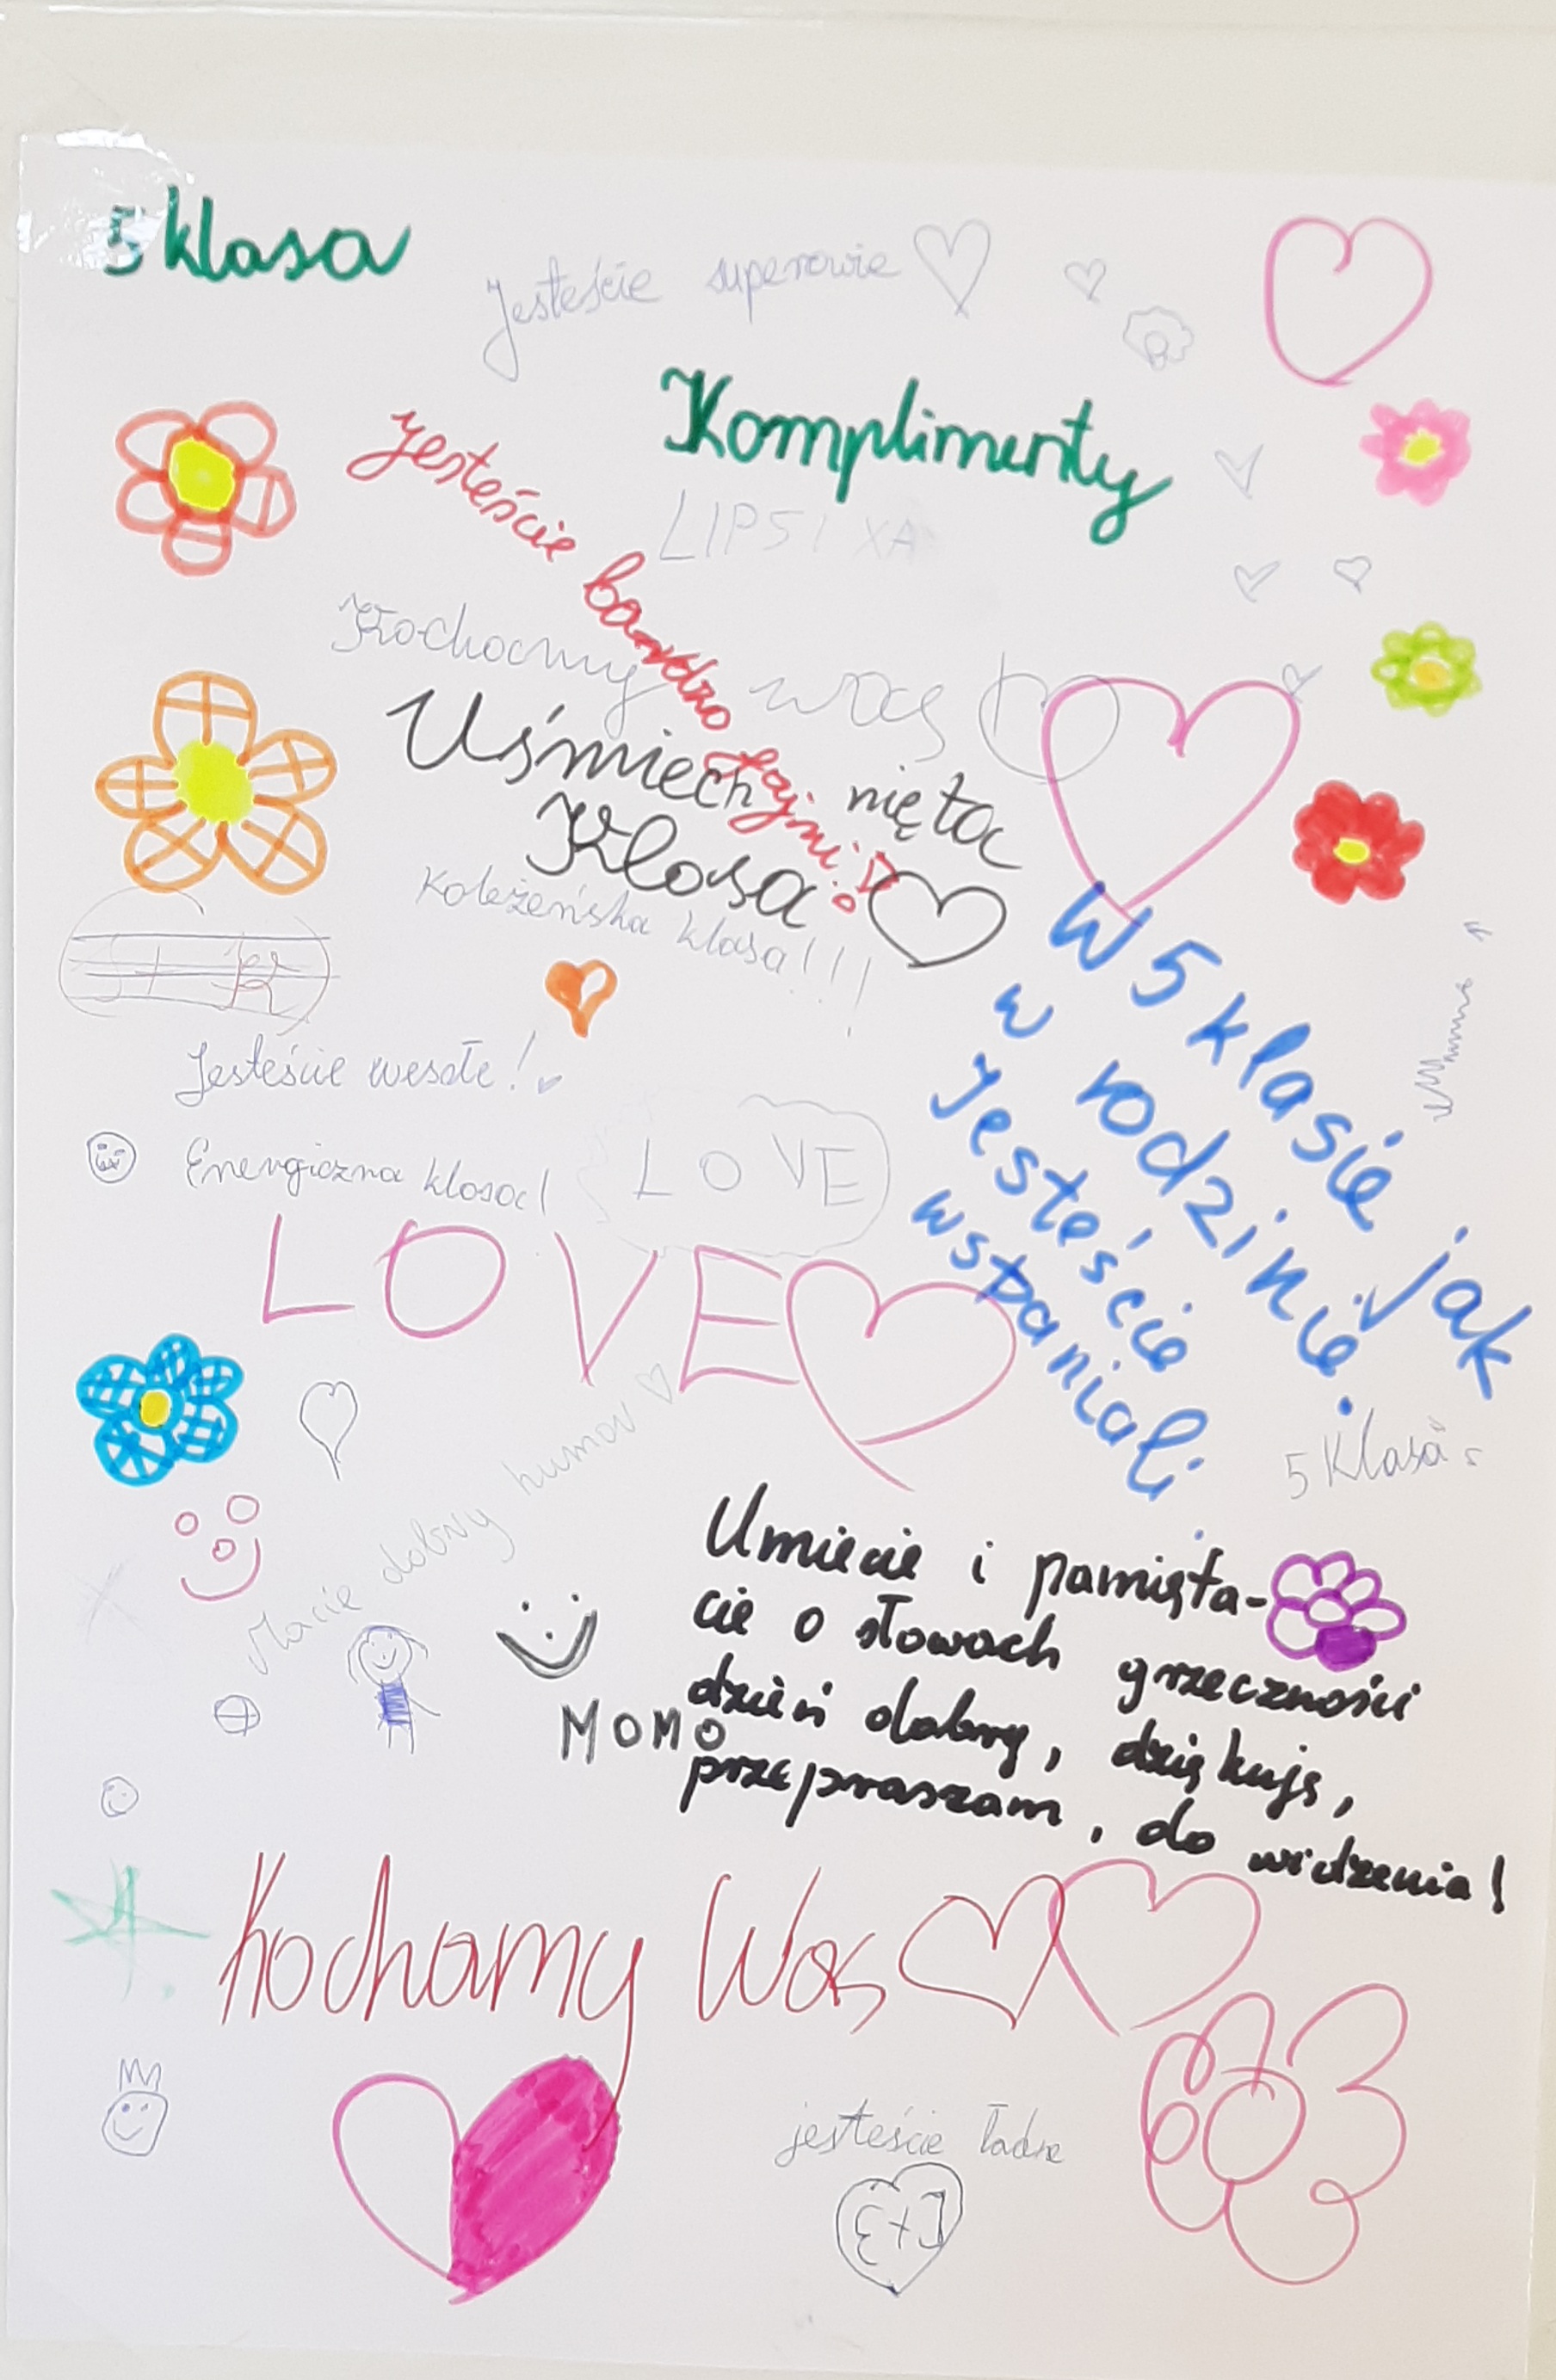 5 klasa
Jesteście superowie
Komplimenty
Jesteście bardzo fajni!
Kochamy was
Uśmiechnięta
Klasa
Koleżeńska klasa!!!
W 5 klasie jak
w rodzinie.
Jesteście
wspaniali
Jesteście wesołe!
Energiczna klasa!
LOVE
LOVE
5 Klasa
Macie dobry humor
Umiecie i pamięta-
cie o słowach grzeczności
dzień dobry, dziękuję,
przepraszam, do widzenia!
MOMO
Kochamy Was
jesteście ładne